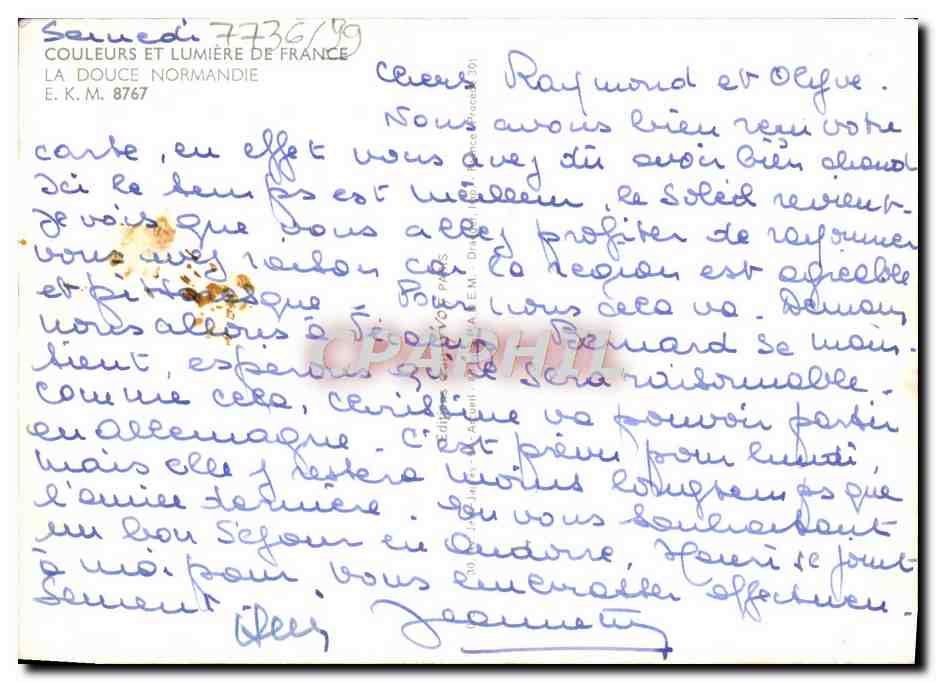 Samedi 7736/99
COULEURS ET LUMIÈRE DE FRANCE
LA DOUCE NORMANDIE
E. K. M. 8767
Chers Raymond et Olype.
Nous avons bien reçu votre
carte, en effet vous avez dû avoir bien chaud
Ici le temps est meilleur, le Soleil revient.
Je vois que vous allez profiter de rayonner
vous avez raison car la région est agréable
et pittoresque - Pour nous cela va. Demain
nous allons à Bernard se main-
tient, espérons qu'il sera raisonnable.
Comme cela, Christine va pouvoir partir
en Allemagne. C'est prévu pour lundi,
mais elle y restera moins longtemps que
l'année dernière. En vous souhaitant
un bon Séjour en Andorre, Henri se joint
à moi pour vous embrasser affectueu-
sement
Henri Jeannette
CPARHIL